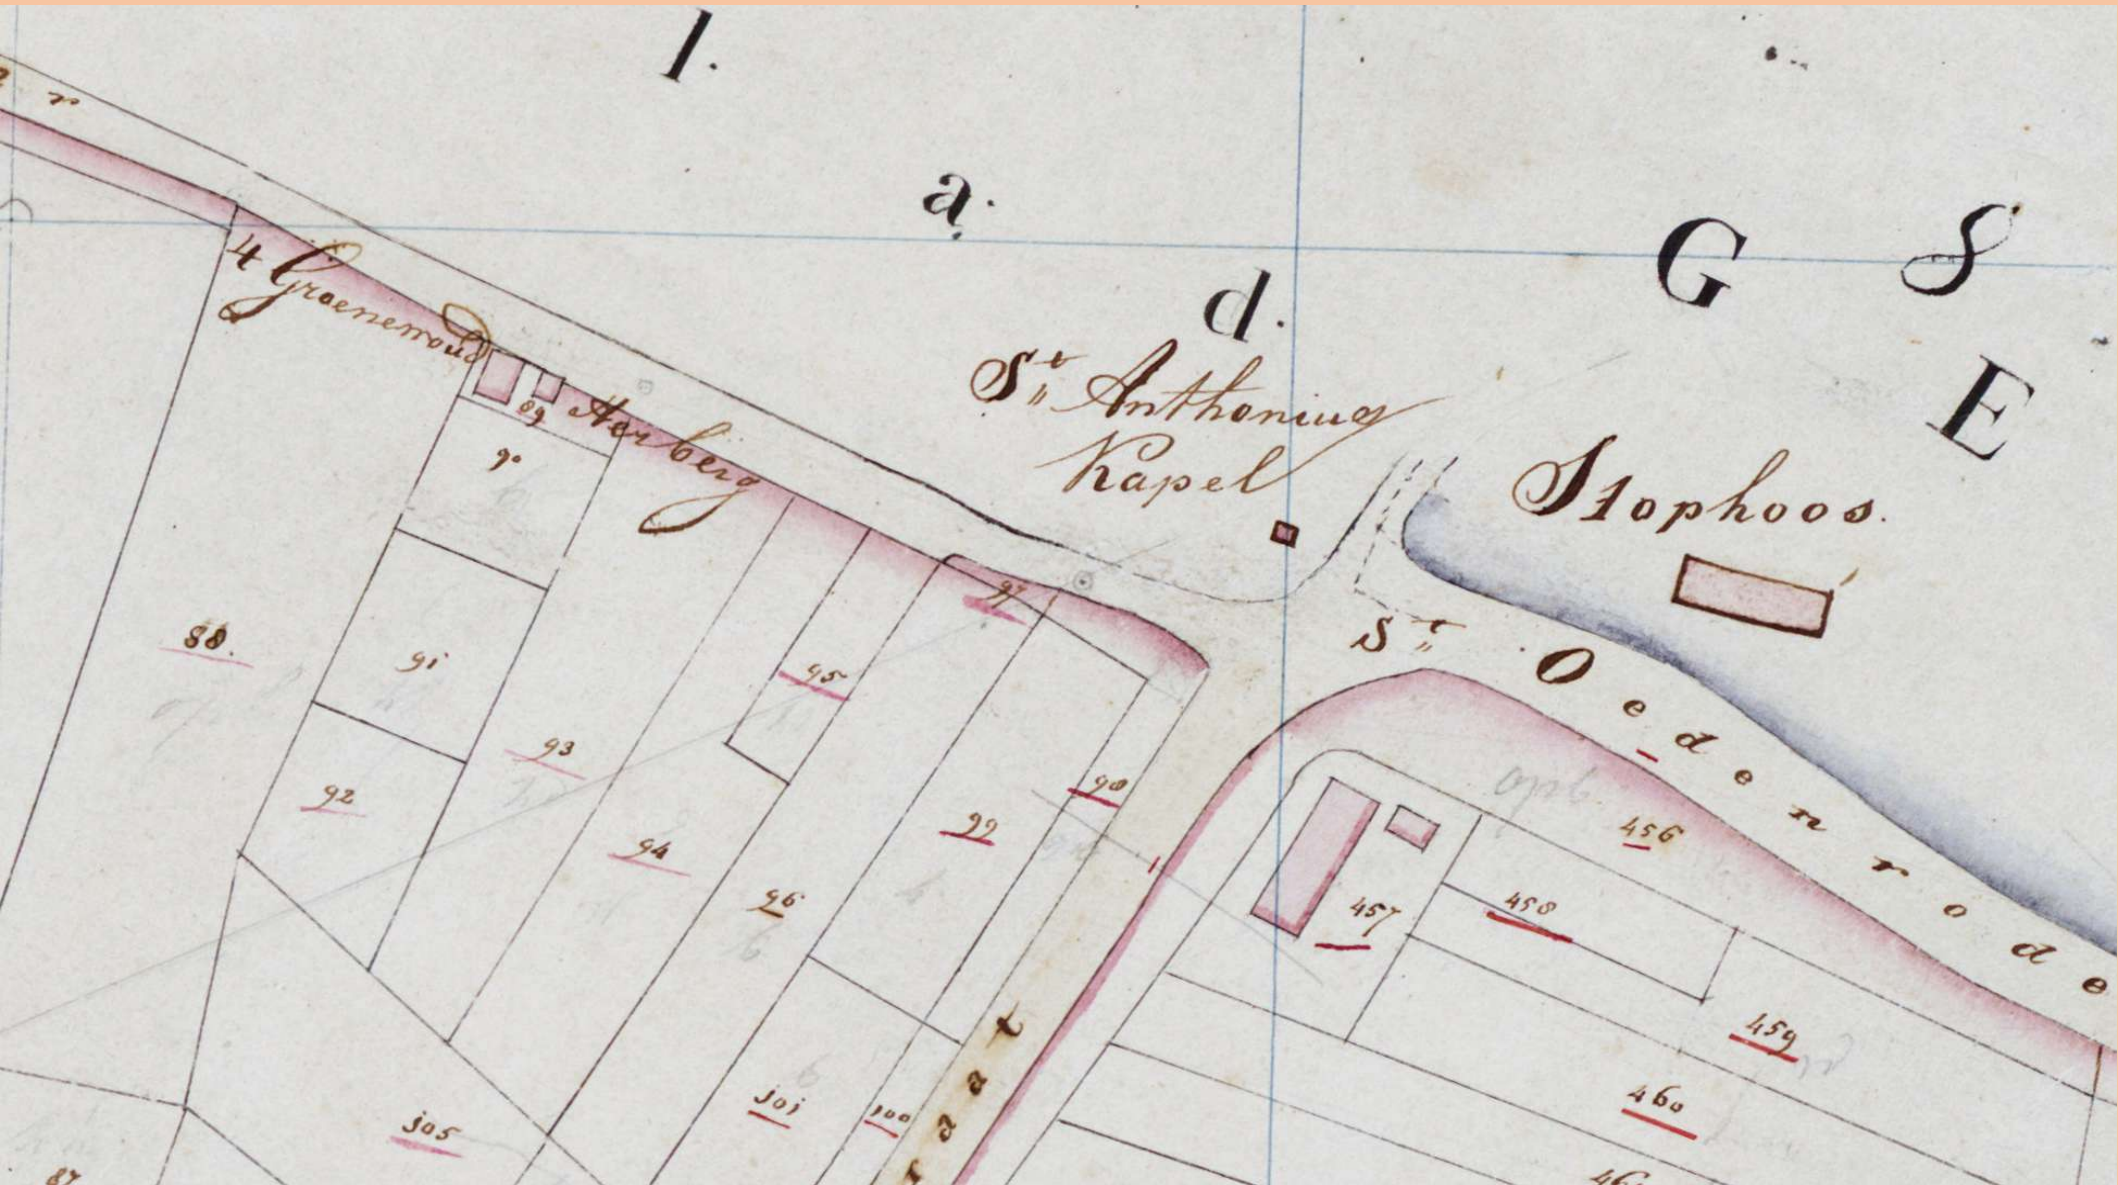 l.
a.
d.
G S
E
r
4 Groenewoud
Herberg
St Anthonius
Kapel
Stophoos.
St Oedenrode
aat
88.
89
90
91
92
93
94
95
96
97
98
99
100
101
105
87
456
457
458
459
460